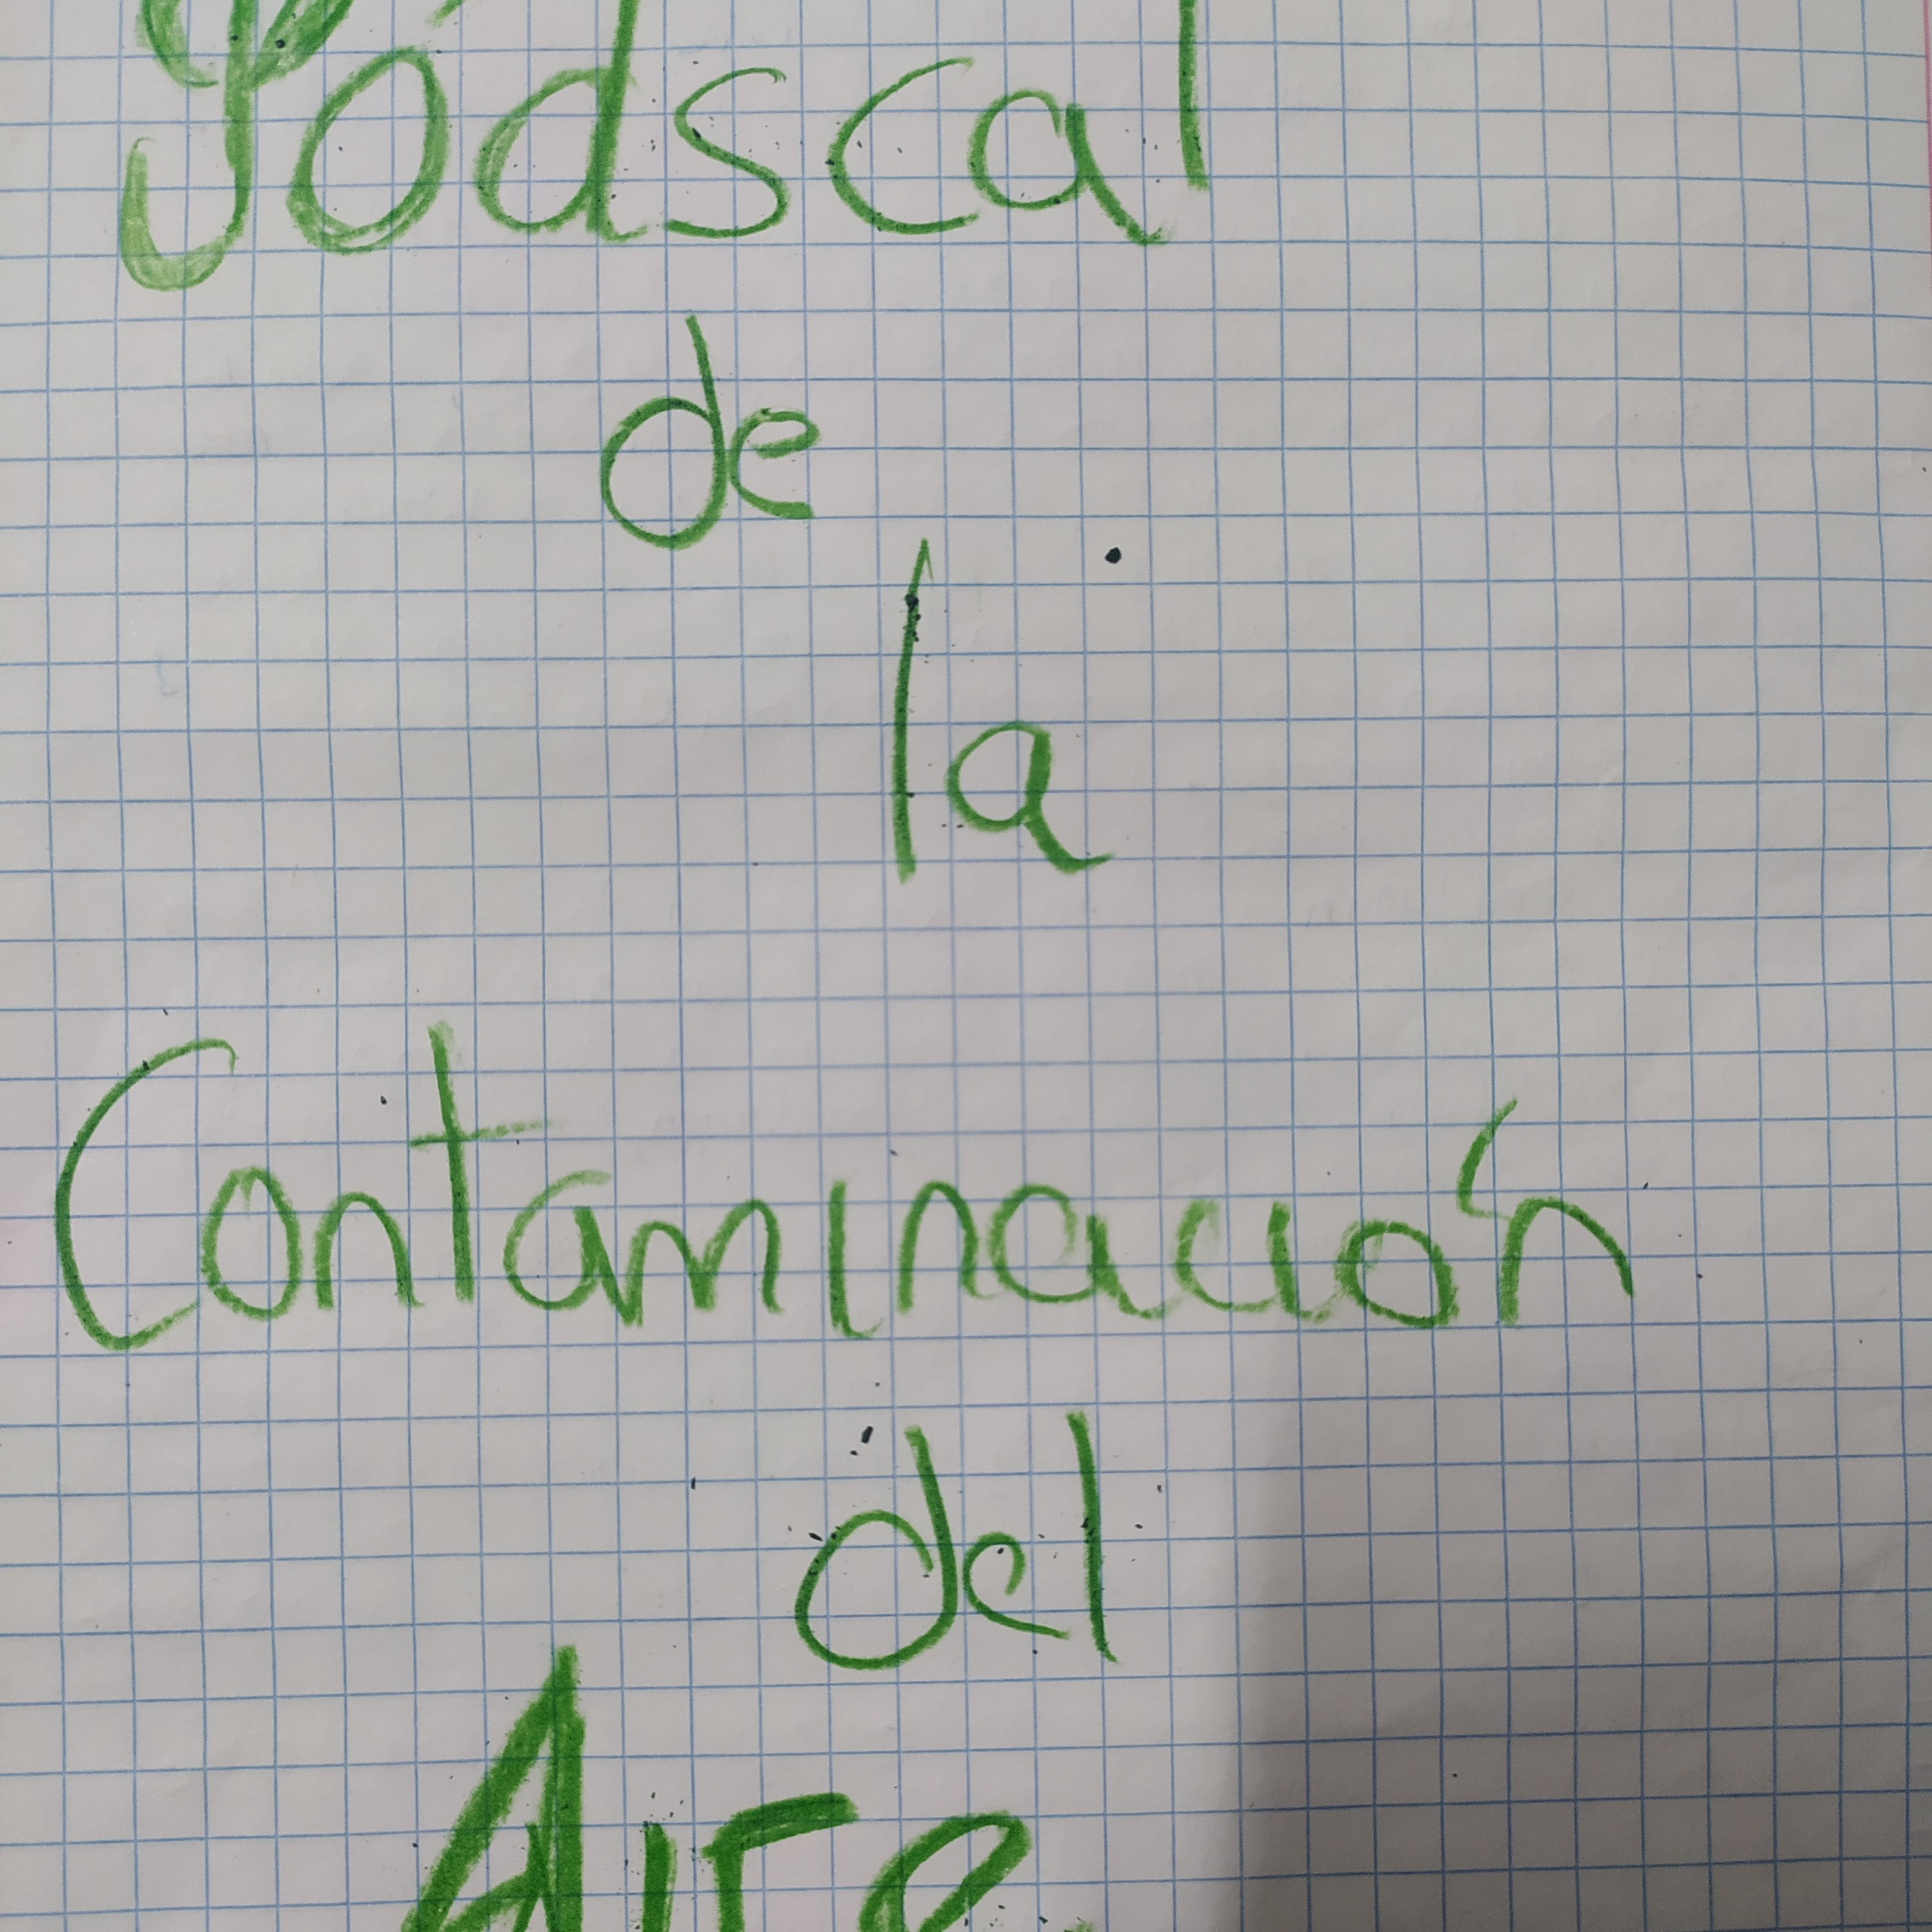 Pódscal
de
la
Contaminación
del
Aire